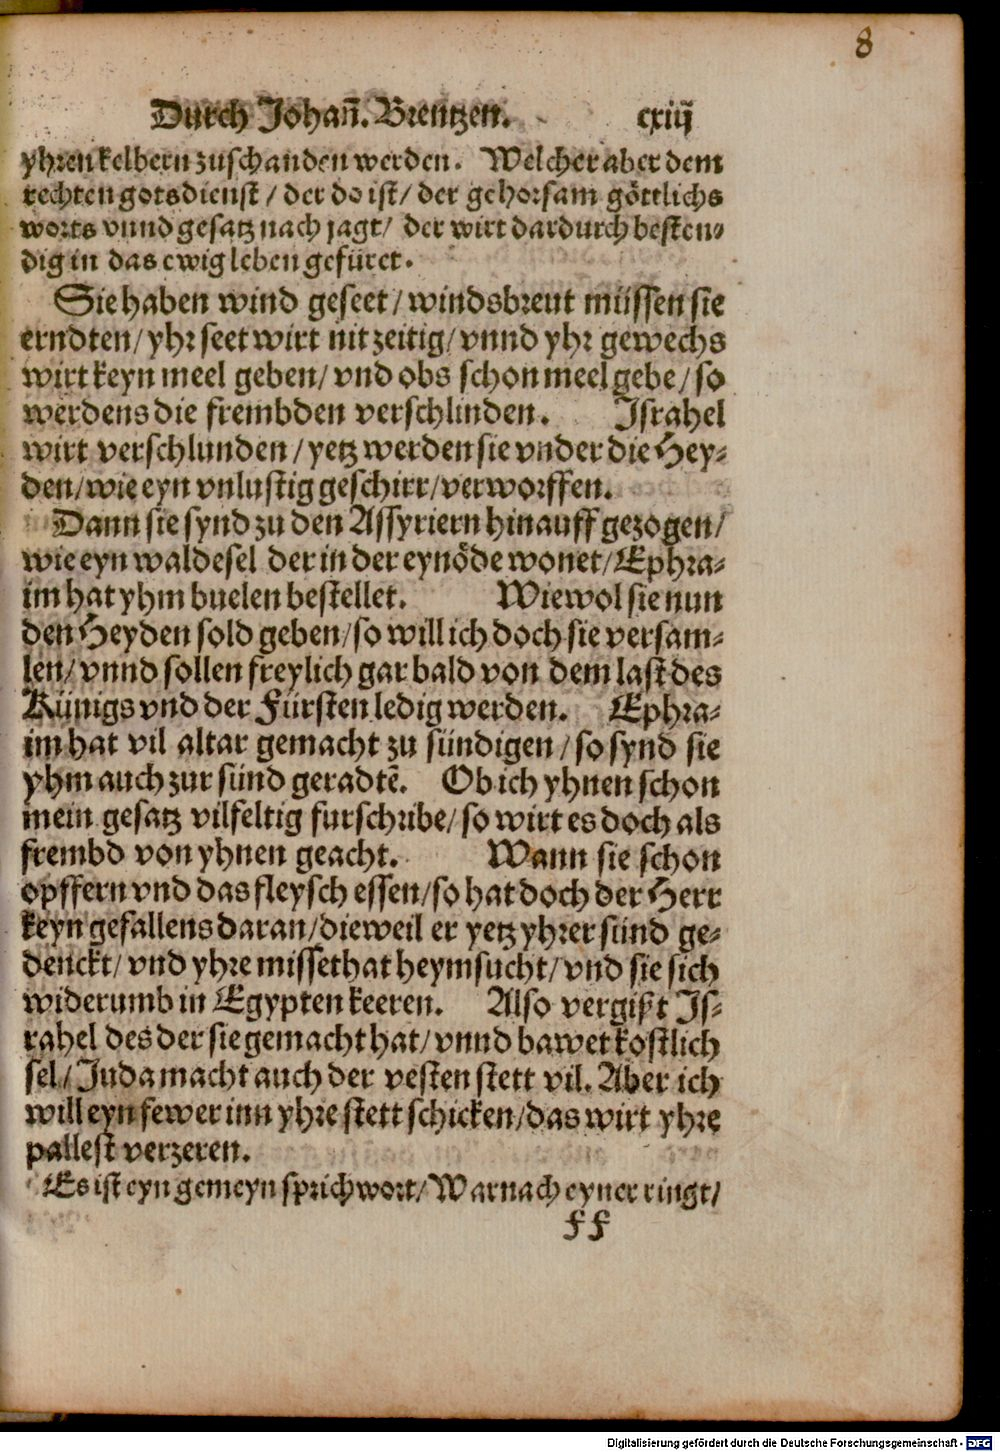 8
Durch Johañ. Brentzen. cxiiij
yhren kelbern zuschanden werden. Welcher aber dem
rechten gotsdienst / der do ist / der gehorsam göttlichs
worts vnnd gesatz nach jagt / der wirt dardurch besten⸗
dig in das ewig leben gefüret.
Sie haben wind geseet / windsbreut müssen sie
erndten / yhr seet wirt nit zeitig / vnnd yhr gewechs
wirt keyn meel geben / vnd obs schon meel gebe / so
werdens die frembden verschlinden. Israhel
wirt verschlunden / yetz werden sie vnder die Hey⸗
den / wie eyn vnlustig geschirr / verworffen.
Dann sie synd zu den Assyriern hinauff gezogen /
wie eyn waldesel der in der eynöde wonet / Ephra⸗
im hat yhm buelen bestellet. Wiewol sie nun
den Heyden sold geben / so will ich doch sie versam⸗
len / vnnd sollen freylich gar bald von dem last des
Künigs vnd der Fürsten ledig werden. Ephra⸗
im hat vil altar gemacht zu sündigen / so synd sie
yhm auch zur sünd geradtē. Ob ich yhnen schon
mein gesatz vilfeltig furschribe / so wirt es doch als
frembd von yhnen geacht. Wann sie schon
opffern vnd das fleysch essen / so hat doch der Herr
keyn gefallens daran / dieweil er yetz yhrer sünd ge⸗
denckt / vnd yhre missethat heymsucht / vnd sie sich
widerumb in Egypten keeren. Also vergißt Is⸗
rahel des der sie gemacht hat / vnnd bawet kostlich
sel / Juda macht auch der vesten stett vil. Aber ich
will eyn fewer inn yhre stett schicken / das wirt yhre
pallest verzeren.
Es ist eyn gemeyn sprichwort / Warnach eyner ringt /
ff
Digitalisierung gefördert durch die Deutsche Forschungsgemeinschaft - DFG